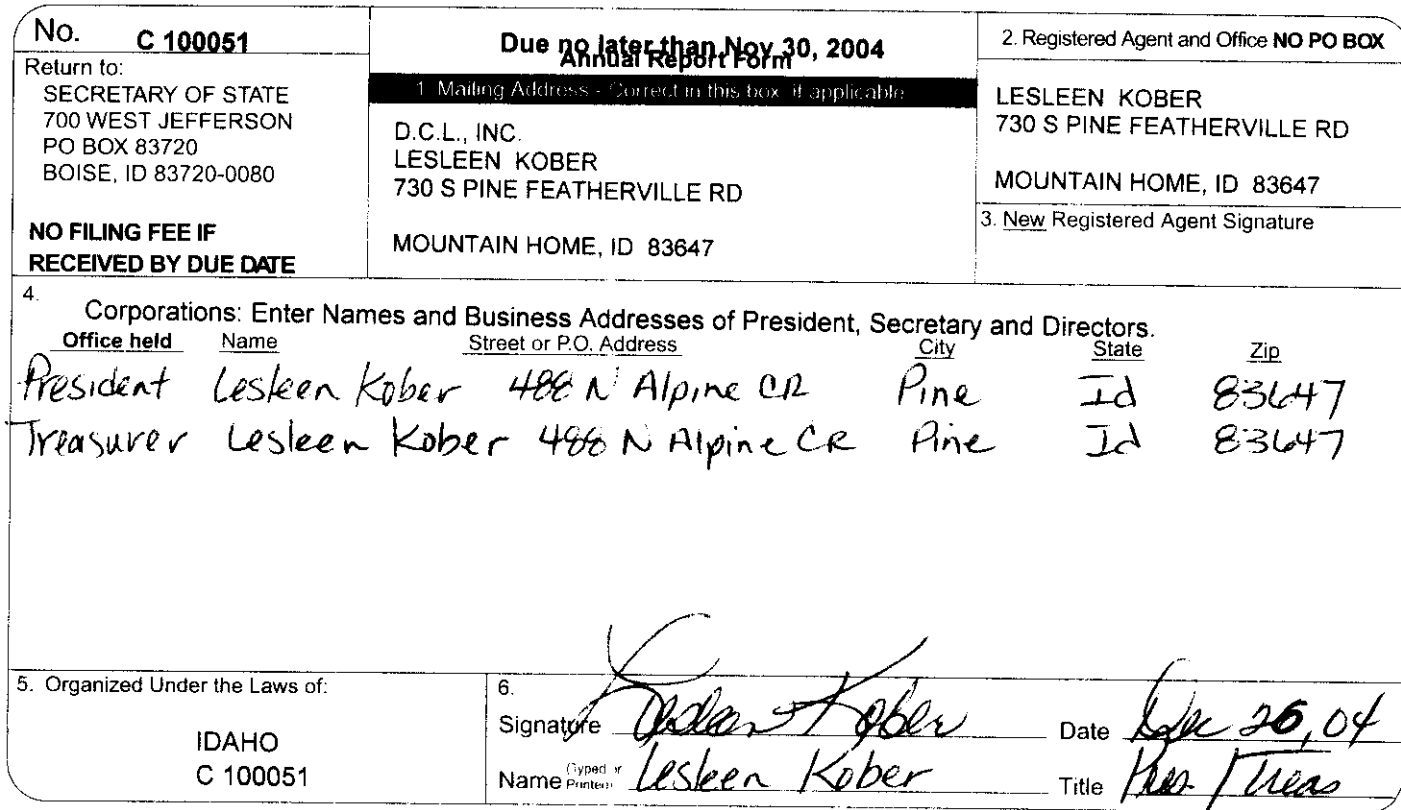 No. C 100051
Return to:
SECRETARY OF STATE
700 WEST JEFFERSON
PO BOX 83720
BOISE, ID 83720-0080
NO FILING FEE IF
RECEIVED BY DUE DATE
Due no later than Nov 30, 2004
Annual Report Form
1. Mailing Address - Correct in this box if applicable
D.C.L., INC.
LESLEEN KOBER
730 S PINE FEATHERVILLE RD
MOUNTAIN HOME, ID 83647
2. Registered Agent and Office NO PO BOX
LESLEEN KOBER
730 S PINE FEATHERVILLE RD
MOUNTAIN HOME, ID 83647
3. New Registered Agent Signature
4.
Corporations: Enter Names and Business Addresses of President, Secretary and Directors.
Office held Name Street or P.O. Address City State Zip
President Lesleen Kober 488 N Alpine CR Pine Id 83647
Treasurer Lesleen Kober 488 N Alpine CR Pine Id 83647
5. Organized Under the Laws of:
IDAHO
C 100051
6.
Signature Lesleen Kober Date Dec 26, 04
Name (Typed or Printed) Lesleen Kober Title Pres. / Treas